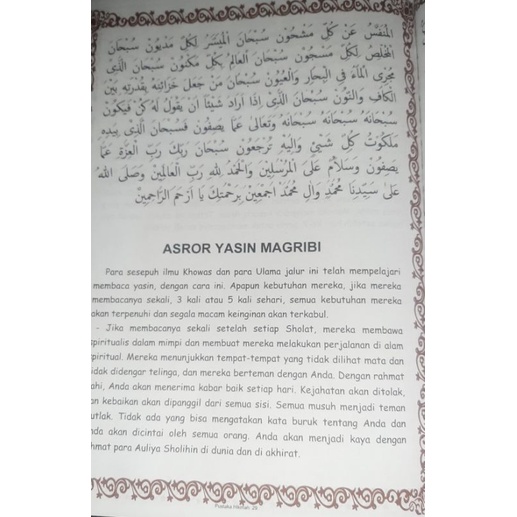 الْمُنَفِّسُ عَنْ كُلِّ مَشْحُوْنٍ سُبْحَانَ الْمُيَسِّرِ لِكُلِّ مَدْيُوْنٍ سُبْحَانَ
الْمُخَلِّصِ لِكُلِّ مَسْجُوْنٍ سُبْحَانَ الْعَالِمِ بِكُلِّ مَكْنُوْنٍ سُبْحَانَ الَّذِى
مُجْرِى الْمَآءَ فِى الْبِحَارِ وَالْعُيُوْنِ سُبْحَانَ مَنْ جَعَلَ خَزَائِنَهُ بِقُدْرَتِهِ بَيْنَ
الْكَافِ وَالنُّوْنِ سُبْحَانَ الَّذِىْ إِذَا أَرَادَ شَيْئًا اَنْ يَقُوْلَ لَهُ كُنْ فَيَكُوْنُ
سُبْحَانَهُ سُبْحَانَهُ سُبْحَانَهُ وَتَعَالَى عَمَّا يَصِفُوْنَ فَسُبْحَانَ الَّذِى بِيَدِهِ
مَلَكُوْتُ كُلِّ شَيْئٍ وَاِلَيْهِ تُرْجَعُوْنَ سُبْحَانَ رَبِّكَ رَبِّ الْعِزَّةِ عَمَّا
يَصِفُوْنَ وَسَلَامٌ عَلَى الْمُرْسَلِيْنَ وَالْحَمْدُ لِلّٰهِ رَبِّ الْعَالَمِيْنَ وَصَلَّى اللهُ
عَلَى سَيِّدِنَا مُحَمَّدٍ وَاٰلِ مُحَمَّدٍ اَجْمَعِيْنَ بِرَحْمَتِكَ يَا اَرْحَمَ الرَّاحِمِيْنَ
ASROR YASIN MAGRIBI
Para sesepuh ilmu Khowas dan para Ulama jalur ini telah mempelajari
membaca yasin, dengan cara ini. Apapun kebutuhan mereka, jika mereka
membacanya sekali, 3 kali atau 5 kali sehari, semua kebutuhan mereka
akan terpenuhi dan segala macam keinginan akan terkabul.
- Jika membacanya sekali setelah setiap Sholat, mereka membawa
spiritualis dalam mimpi dan membuat mereka melakukan perjalanan di alam
spiritual. Mereka menunjukkan tempat-tempat yang tidak dilihat mata dan
tidak didengar telinga, dan mereka berteman dengan Anda. Dengan rahmat
ahi, Anda akan menerima kabar baik setiap hari. Kejahatan akan ditolak,
an kebaikan akan dipanggil dari semua sisi. Semua musuh menjadi teman
utlak. Tidak ada yang bisa mengatakan kata buruk tentang Anda dan
nda akan dicintai oleh semua orang. Anda akan menjadi kaya dengan
hmat para Auliya Sholihin di dunia dan di akhirat.
Pustaka Hikmah